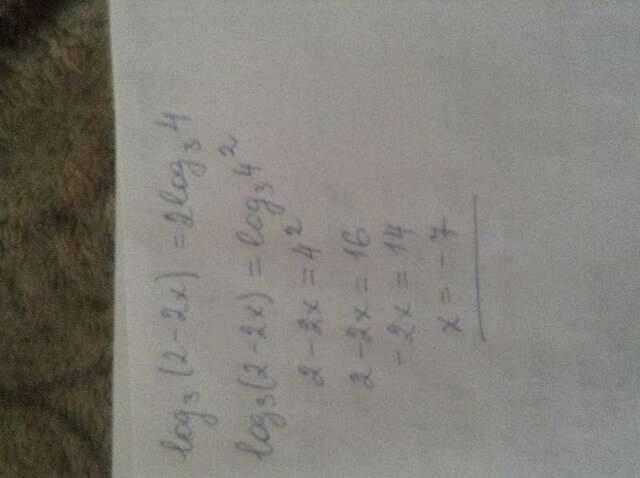 log₃(2-2x) = 2log₃4
log₃(2-2x) = log₃4²
2-2x = 4²
2-2x = 16
-2x = 14
x = -7